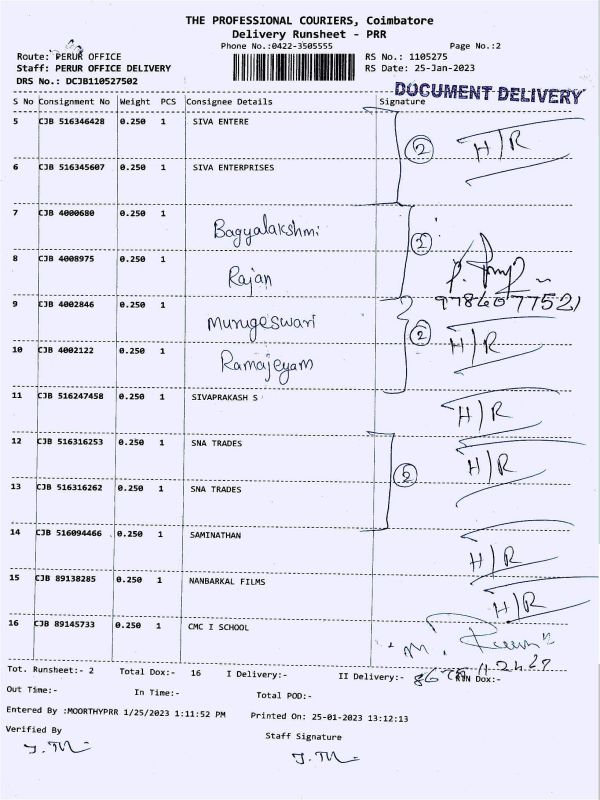 THE PROFESSIONAL COURIERS, Coimbatore
Delivery Runsheet - PRR
Phone No.:0422-3505555
Page No.:2
Route: PERUR OFFICE
RS No.: 1105275
Staff: PERUR OFFICE DELIVERY
RS Date: 25-Jan-2023
DRS No.: DCJB110527502
DOCUMENT DELIVERY
S No Consignment No Weight PCS Consignee Details Signature
5 CJB 516346428 0.250 1 SIVA ENTERE
2 H/R
6 CJB 516345607 0.250 1 SIVA ENTERPRISES
7 CJB 4000680 0.250 1 Bagyalakshmi
2
8 CJB 4008975 0.250 1 Rajan
9786077521
9 CJB 4002846 0.250 1 Murugeswari
2 H/R
10 CJB 4002122 0.250 1 Ramajeyam
11 CJB 516247458 0.250 1 SIVAPRAKASH S H/R
12 CJB 516316253 0.250 1 SNA TRADES H/R
2
13 CJB 516316262 0.250 1 SNA TRADES
14 CJB 516094466 0.250 1 SAMINATHAN H/R
15 CJB 89138285 0.250 1 NANBARKAL FILMS H/R
16 CJB 89145733 0.250 1 CMC I SCHOOL
Tot. Runsheet:- 2 Total Dox:- 16 I Delivery:- II Delivery:- RTN Dox:-
Out Time:- In Time:- Total POD:-
Entered By :MOORTHYPRR 1/25/2023 1:11:52 PM Printed On: 25-01-2023 13:12:13
Verified By
Staff Signature